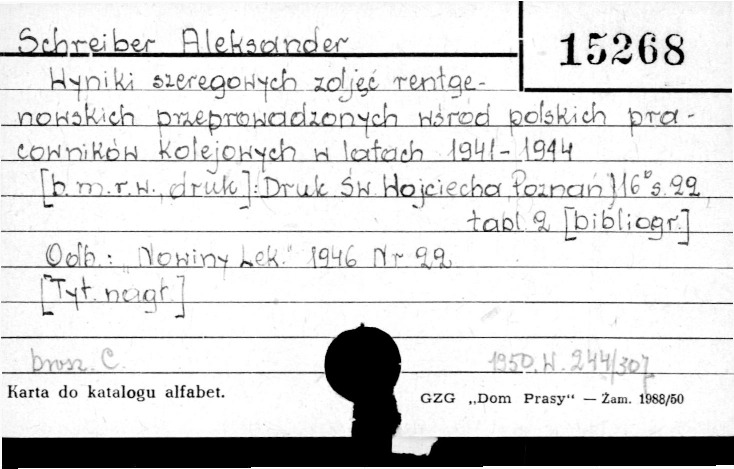 Schreiber Aleksander
15268
Wyniki szeregowych zdjęć rentge-
nowskich przeprowadzonych wśród polskich pra-
cowników kolejowych w latach 1941-1944
[b.m.r.w., druk]: Druk Św. Wojciecha, Poznań] 16° s. 22,
tabl. 2 [bibliogr.]
Odb.: "Nowiny Lek." 1946 Nr 22
[Tyt. nagł.]
brosz. C.
1950. W. 244/307
Karta do katalogu alfabet.
GZG „Dom Prasy“ — Żam. 1988/50